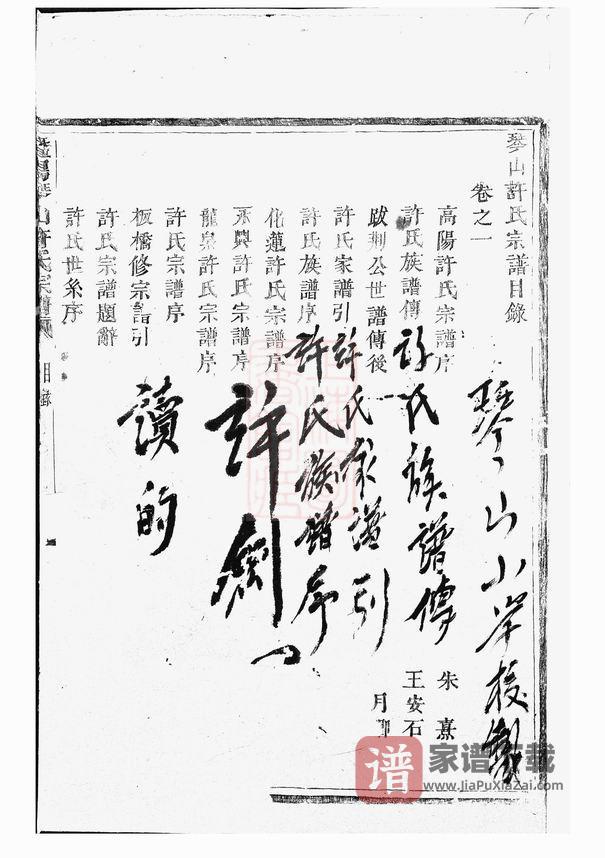 琴山許氏宗譜目錄
卷之一
高陽許氏宗譜序 朱熹
許氏族譜傳 王安石
跋荆公世譜傳後 月
許氏家譜引
許氏族譜序
化蓮許氏宗譜序
永興許氏宗譜序
龍泉許氏宗譜序
許氏宗譜序
板橋修宗譜引
許氏宗譜題辭
許氏世系序
山許氏宗譜 目錄
琴山小學校
許氏族譜傳
許氏家譜引
許氏族譜序
許
讀的
谱 家谱下载
www.JiaPuXiaZai.com